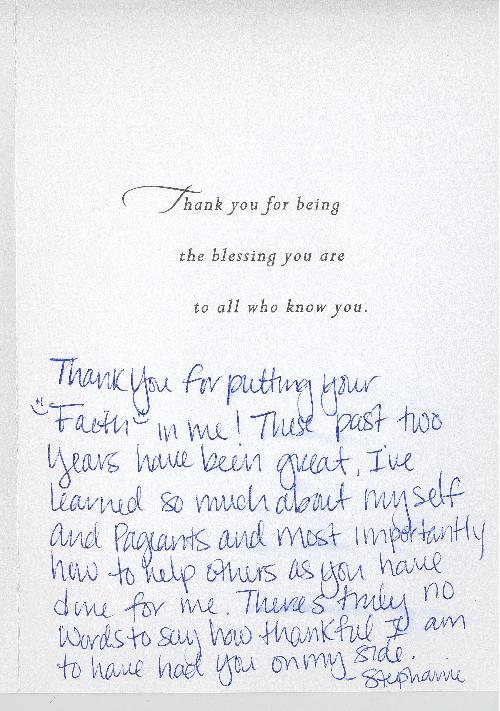 Thank you for being
the blessing you are
to all who know you.
Thank You for putting your
"Faith" in me! These past two
years have been great, I've
learned so much about myself
and Pageants and most importantly
how to help others as you have
done for me. There's truly no
words to say how thankful I am
to have had you on my side.
- Stephanie